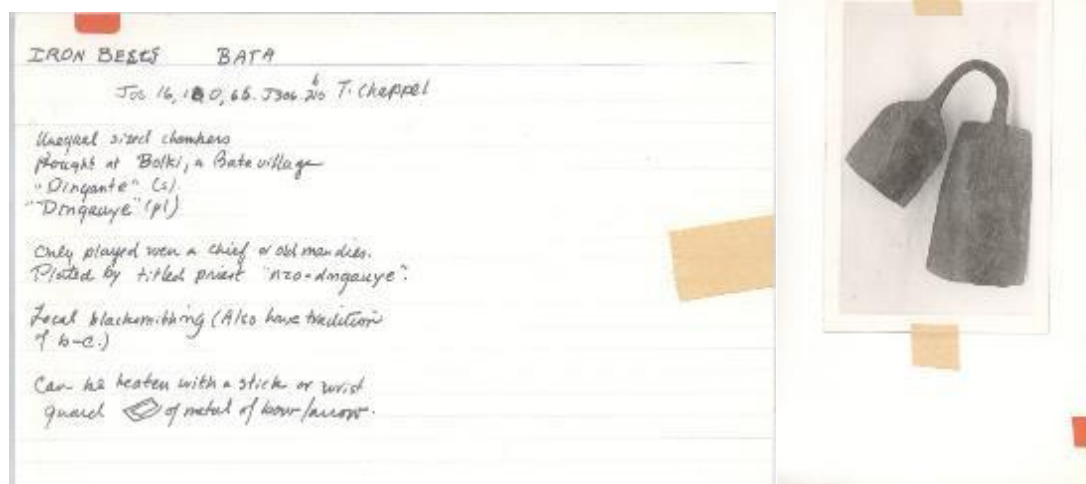 IRON BELLS BATA
Jos 16, 65. J306. T. Chappel
Unequal sized chambers
Bought at Bolki, a Bata village
"Dingante" (s)
"Dingauye" (pl)
Only played wen a chief or old man dies.
Plated by titled priest "nzo-dingauye".
Local blacksmithing (Also have tradition
of b-c.)
Can be beaten with a stick or wrist
guard of metal of bow/arrow.